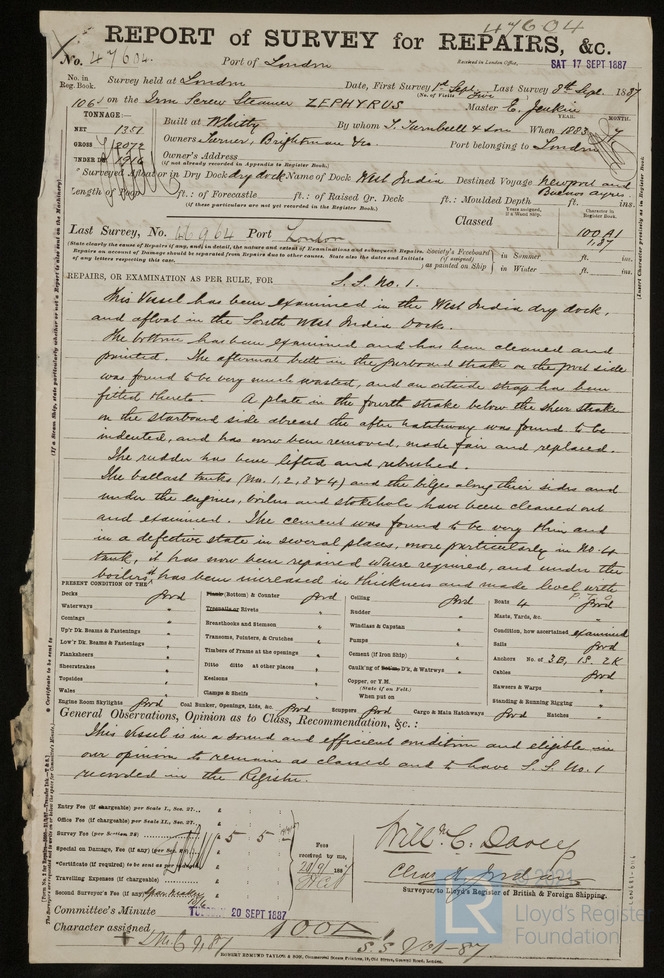 47604
REPORT of SURVEY for REPAIRS, &c.
No. 47604. Port of London
Received in London Office, SAT 17 SEPT 1887
No. in Reg. Book. Survey held at London Date, First Survey 1st Sept Last Survey 8th Sept. 1887
(No. of Visits Five)
106 on the Iron Screw Steamer ZEPHYRUS Master E. Jenkin
TONNAGE:— YEAR. MONTH.
NET 1351 Built at Whitby By whom T. Turnbull & Son When 1883 7
GROSS 2072 Owners Turner, Brightman & Co. Port belonging to London
UNDER DK 1916 Owner's Address
(If not already recorded in Appendix to Register Book.)
Surveyed Afloat or in Dry Dock dry dock Name of Dock West India Destined Voyage Newport and Buenos ayres
Length of Poop ft.: of Forecastle ft.: of Raised Qr. Deck ft.: Moulded Depth ft. ins.
(If these particulars are not yet recorded in the Register Book.)
Years assigned, if a Wood Ship. Character in Register Book.
Last Survey, No. Port London Classed 100 A1
1.87
(State clearly the cause of Repairs, if any, and, in detail, the nature and extent of Examinations and subsequent Repairs.
Repairs on account of Damage should be separated from Repairs due to other causes. State also the dates and Initials of any letters respecting this case.
Society's Freeboard (if assigned) as painted on Ship in Summer ft. ins.
in Winter ft. ins.
REPAIRS, OR EXAMINATION AS PER RULE, FOR S.S. No. 1.
This Vessel has been examined in the West India dry dock,
and afloat in the South West India Dock.
The bottom has been examined and has been cleaned and
painted. The aftermost butt in the garboard strake on the port side
was found to be very much wasted, and an outside strap has been
fitted thereto. A plate in the fourth strake below the sheer strake
on the starboard side abreast the after hatchway was found to be
indented, and has now been removed, made fair and replaced.
The rudder has been lifted and rebushed.
The ballast tanks (Nos. 1, 2, 3 & 4) and the bilges along their sides and
under the engines, boilers and stokehole have been cleaned out
and examined. The cement was found to be very thin and
in a defective state in several places, more particularly in No. 4
tank, it has now been repaired where required, and under the
boilers it has been increased in thickness and made level with
P.T.O.
PRESENT CONDITION OF THE
Decks Good
Waterways "
Comings "
Up'r Dk. Beams & Fastenings "
Low'r Dk. Beams & Fastenings "
Plankshears "
Sheerstrakes "
Topsides "
Wales "
Engine Room Skylights Good
Plank (Bottom) & Counter Good
Treenails or Rivets "
Breasthooks and Stemson "
Transoms, Pointers, & Crutches "
Timbers of Frame at the openings "
Ditto ditto at other places "
Keelsons "
Clamps & Shelfs "
Coal Bunker, Openings, Lids, &c. Good
Ceiling Good
Rudder "
Windlass & Capstan "
Pumps "
Cement (if Iron Ship) "
Caulk'ng of Bottom D'k, & Watrwys "
Copper, or Y.M.
(State if on Felt.)
When put on
Scuppers Good Cargo & Main Hatchways Good Hatches "
Boats 4 Good
Masts, Yards, &c. "
Condition, how ascertained examined
Sails Good
Anchors No. of 3B, 1S, 2K
Cables Good
Hawsers & Warps "
Standing & Running Rigging "
General Observations, Opinion as to Class, Recommendation, &c.:
This vessel is in a sound and efficient condition and eligible in
our opinion to remain as classed and to have S.S. No. 1
recorded in the Register.
Entry Fee (if chargeable) per Scale I., Sec. 27... £
Office Fee (if chargeable) per Scale II., Sec. 27... £
Survey Fee (per Section 28) £ 5 5
Special on Damage, Fee (if any) (per Sec. £
*Certificate (if required) to be sent as per margin £
Travelling Expenses (if chargeable) £
Second Surveyor's Fee (if any) £
Fees received by me, 20/9/1887
Willm. C. Davey
Chas. H. Jordan
Surveyor to Lloyd's Register of British & Foreign Shipping.
Committee's Minute TUES 20 SEPT 1887
Character assigned 100A1
LMC 9,87 S.S. No1-87
ROBERT EDMUND TAYLOR & SON, Commercial Steam Printers, 19, Old Street, Goswell Road, London.
(Insert Character precisely as in Register Book.)
(If a Steam Ship, state particularly whether or not a Report is also sent on the Machinery.)
* Certificate to be sent to
LR
2021
Lloyd's Register
Foundation